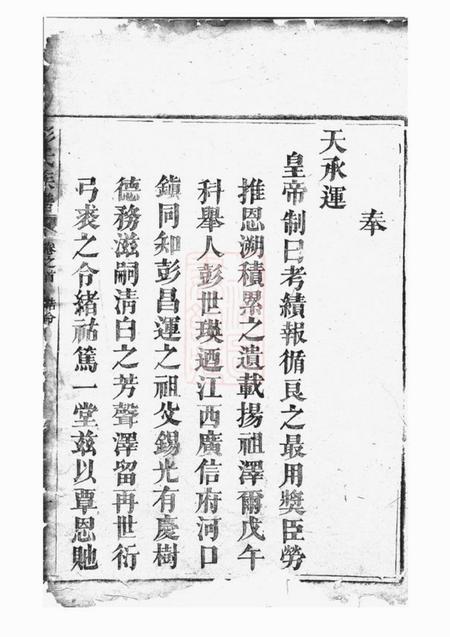 奉
天承運
皇帝制曰考績報循良之最用獎臣勞
推恩溯積累之遺載揚祖澤爾戊午
科舉人彭世瑛迺江西廣信府河口
鎮同知彭昌運之祖父錫光有慶樹
德務滋嗣清白之芳聲澤留再世衍
弓裘之令緒祐篤一堂兹以覃恩貤
彭氏族譜 卷之首